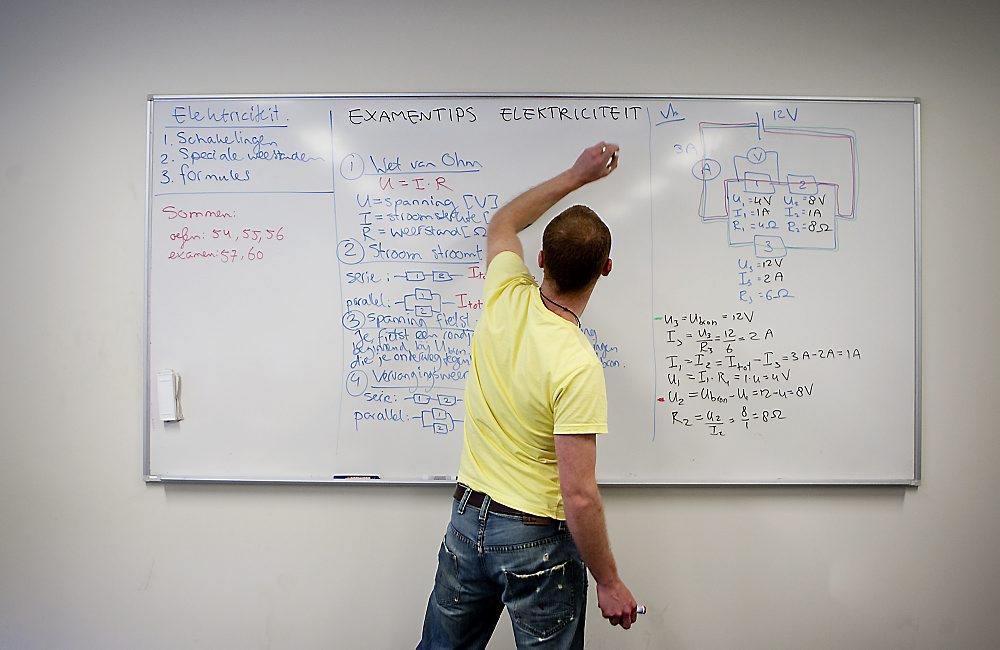 Elektriciteit.
1. Schakelingen
2. Speciale weerstanden
3. formules
Sommen:
oefen: 54, 55, 56
examen: 57, 60
EXAMENTIPS ELEKTRICITEIT
1 Wet van Ohm
U = I · R
U = spanning [V]
I = stroomsterkte [
R = weerstand [Ω
2 Stroom
serie: 1 2
parallel: 1 2 Itot
3 Spanning fietst
Je fietst een
die je onderweg
4
serie: 1 2
parallel: 1 2
Vb
12V
3A
A
V
1 2
U1 = 4V U2 = 8V
I1 = 1A I2 = 1A
R1 = 4Ω R2 = 8Ω
3
U3 = 12V
I3 = 2A
R3 = 6Ω
U3 = Ubron = 12V
I3 = U3/R3 = 12/6 = 2 A
I1 = I2 = Itot - I3 = 3A - 2A = 1A
U1 = I1 · R1 = 1 · 4 = 4V
U2 = Ubron - U1 = 12 - 4 = 8V
R2 = U2/I2 = 8/1 = 8Ω